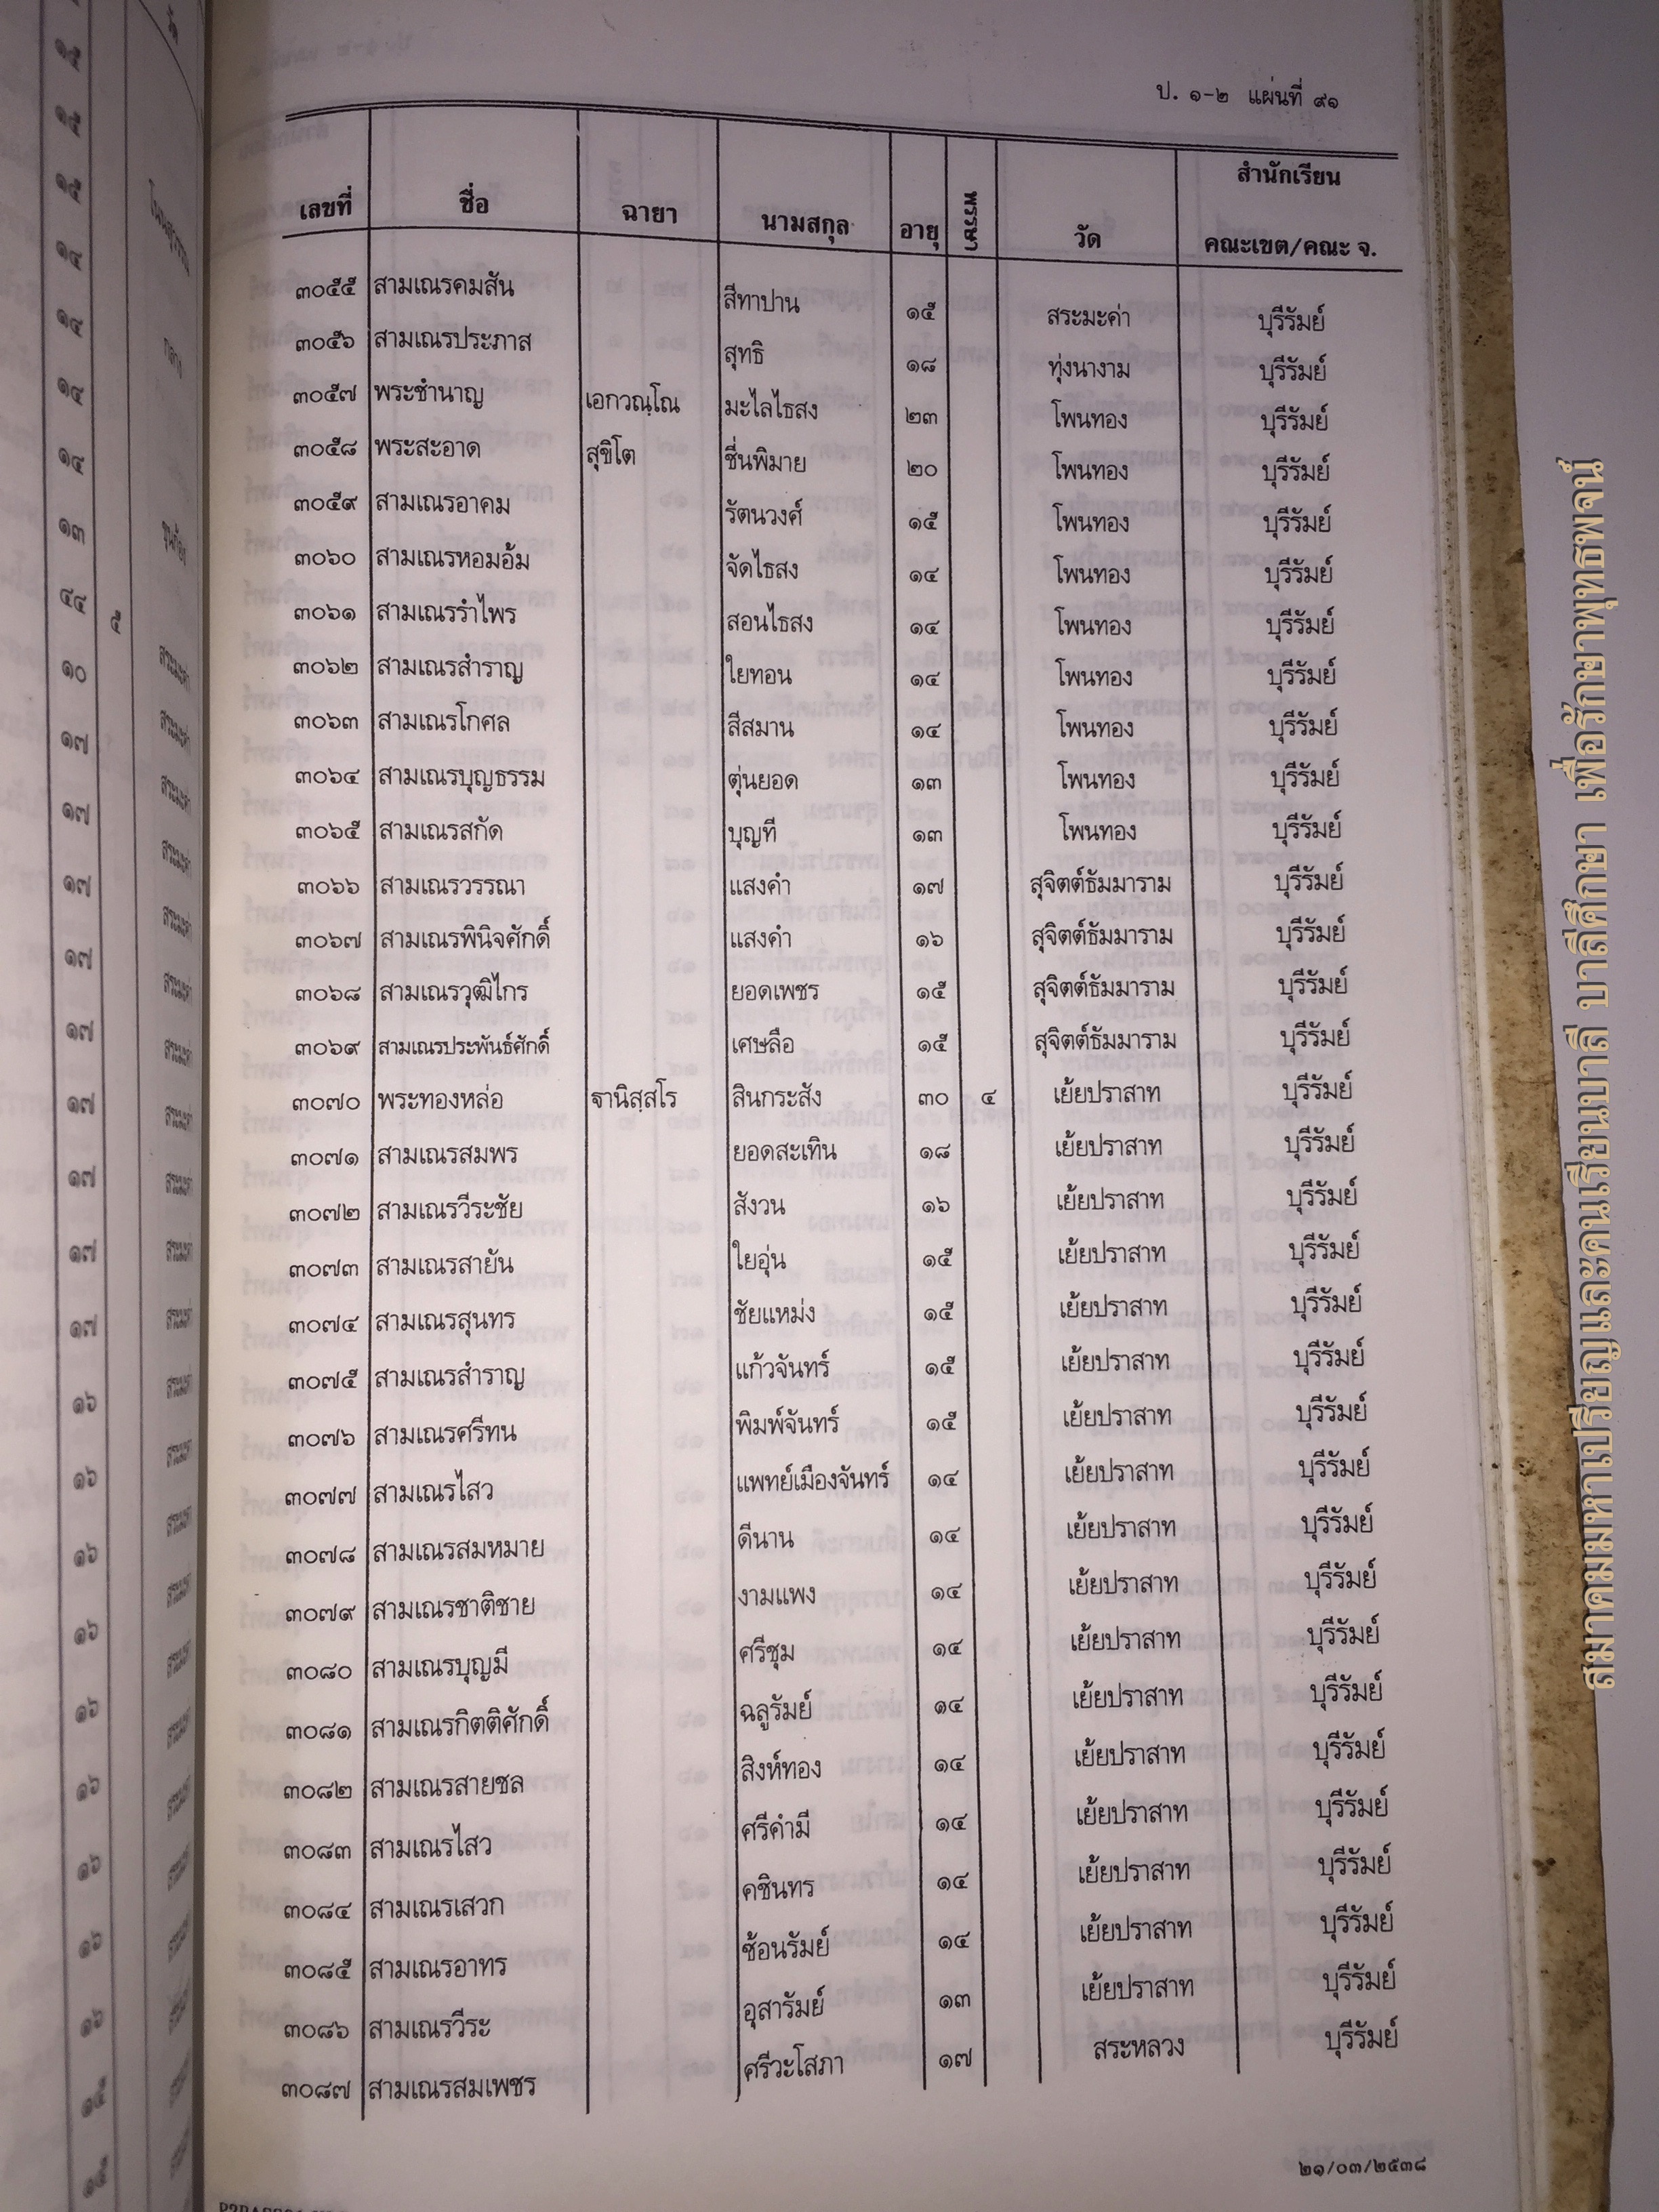 ป. ๑-๒ แผ่นที่ ๙๑
เลขที่ ชื่อ ฉายา นามสกุล อายุ พรรษา วัด สำนักเรียน คณะเขต/คณะ จ.
๓๐๕๕ สามเณรคมสัน สีทาปาน ๑๕ สระมะค่า บุรีรัมย์
๓๐๕๖ สามเณรประภาส สุทธิ ๑๘ ทุ่งนางาม บุรีรัมย์
๓๐๕๗ พระชำนาญ เอกวณฺโณ มะไลไธสง ๒๓ โพนทอง บุรีรัมย์
๓๐๕๘ พระสะอาด สุขิโต ชื่นพิมาย ๒๐ โพนทอง บุรีรัมย์
๓๐๕๙ สามเณรอาคม รัตนวงศ์ ๑๕ โพนทอง บุรีรัมย์
๓๐๖๐ สามเณรหอมอ้ม จัดไธสง ๑๔ โพนทอง บุรีรัมย์
๓๐๖๑ สามเณรรำไพร สอนไธสง ๑๔ โพนทอง บุรีรัมย์
๓๐๖๒ สามเณรสำราญ ใยทอน ๑๔ โพนทอง บุรีรัมย์
๓๐๖๓ สามเณรโกศล สีสมาน ๑๔ โพนทอง บุรีรัมย์
๓๐๖๔ สามเณรบุญธรรม ตุ่นยอด ๑๓ โพนทอง บุรีรัมย์
๓๐๖๕ สามเณรสกัด บุญที ๑๓ โพนทอง บุรีรัมย์
๓๐๖๖ สามเณรวรรณา แสงคำ ๑๗ สุจิตต์ธัมมาราม บุรีรัมย์
๓๐๖๗ สามเณรพินิจศักดิ์ แสงคำ ๑๖ สุจิตต์ธัมมาราม บุรีรัมย์
๓๐๖๘ สามเณรวุฒิไกร ยอดเพชร ๑๕ สุจิตต์ธัมมาราม บุรีรัมย์
๓๐๖๙ สามเณรประพันธ์ศักดิ์ เศษลือ ๑๕ สุจิตต์ธัมมาราม บุรีรัมย์
๓๐๗๐ พระทองหล่อ ฐานิสฺสโร สินกระสัง ๓๐ ๔ เย้ยปราสาท บุรีรัมย์
๓๐๗๑ สามเณรสมพร ยอดสะเทิน ๑๘ เย้ยปราสาท บุรีรัมย์
๓๐๗๒ สามเณรวีระชัย สังวน ๑๖ เย้ยปราสาท บุรีรัมย์
๓๐๗๓ สามเณรสายัน ใยอุ่น ๑๕ เย้ยปราสาท บุรีรัมย์
๓๐๗๔ สามเณรสุนทร ชัยแหม่ง ๑๕ เย้ยปราสาท บุรีรัมย์
๓๐๗๕ สามเณรสำราญ แก้วจันทร์ ๑๕ เย้ยปราสาท บุรีรัมย์
๓๐๗๖ สามเณรศรีทน พิมพ์จันทร์ ๑๕ เย้ยปราสาท บุรีรัมย์
๓๐๗๗ สามเณรไสว แพทย์เมืองจันทร์ ๑๔ เย้ยปราสาท บุรีรัมย์
๓๐๗๘ สามเณรสมหมาย ดีนาน ๑๔ เย้ยปราสาท บุรีรัมย์
๓๐๗๙ สามเณรชาติชาย งามแพง ๑๔ เย้ยปราสาท บุรีรัมย์
๓๐๘๐ สามเณรบุญมี ศรีชุม ๑๔ เย้ยปราสาท บุรีรัมย์
๓๐๘๑ สามเณรกิตติศักดิ์ ฉลูรัมย์ ๑๔ เย้ยปราสาท บุรีรัมย์
๓๐๘๒ สามเณรสายชล สิงห์ทอง ๑๔ เย้ยปราสาท บุรีรัมย์
๓๐๘๓ สามเณรไสว ศรีคำมี ๑๔ เย้ยปราสาท บุรีรัมย์
๓๐๘๔ สามเณรเสวก คชินทร ๑๔ เย้ยปราสาท บุรีรัมย์
๓๐๘๕ สามเณรอาทร ช้อนรัมย์ ๑๔ เย้ยปราสาท บุรีรัมย์
๓๐๘๖ สามเณรวีระ อุสารัมย์ ๑๓ เย้ยปราสาท บุรีรัมย์
๓๐๘๗ สามเณรสมเพชร ศรีวะโสภา ๑๗ สระหลวง บุรีรัมย์
๒๑/๐๓/๒๕๓๘
สมาคมมหาเปรียญและคนเรียนบาลี บาลีศึกษา เพื่อรักษาพุทธพจน์